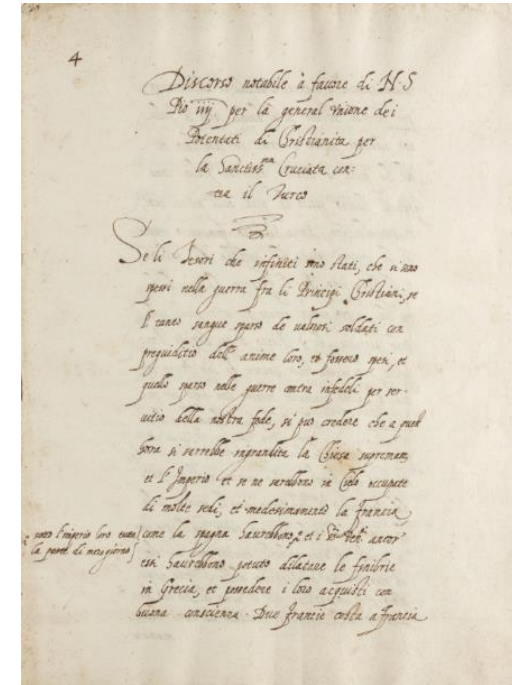 4
Discorso notabile à favore di N. S
Pio iiij per la general Unione dei
Potentati di Cristianita per
la Sanctiss.ma Cruciata con=
tra il Turco
Se li Tesori che infiniti sono stati, che si sono
spesi nella guerra fra li Principi Cristiani, se
l' tanto sangue sparso de valorosi soldati con
pregiuditio dell' anime loro, fossero spesi, et
quello sparso nelle guerre contra infedeli per ser-
uitio della nostra fede, si puo credere che a quest
hora si sarrebbe ingrandita la Chiesa supremam
et l' Imperio et se ne sarebbono in Cielo occupate
di molte sedi, et medesimamente la Francia
sotto l'imperio loro tutta
la parte di mezzogiorno
come la spagna haurebbono, et i ancor
essi haurebbono potuto dilatare le finibrie
in Grecia, et possedere i loro acquisti con
buona conscienza. Due Francie costa a Francia